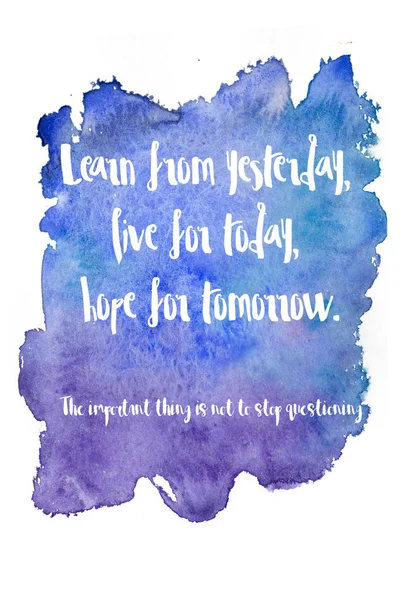 Learn from yesterday,
live for today,
hope for tomorrow.
The important thing is not to stop questioning